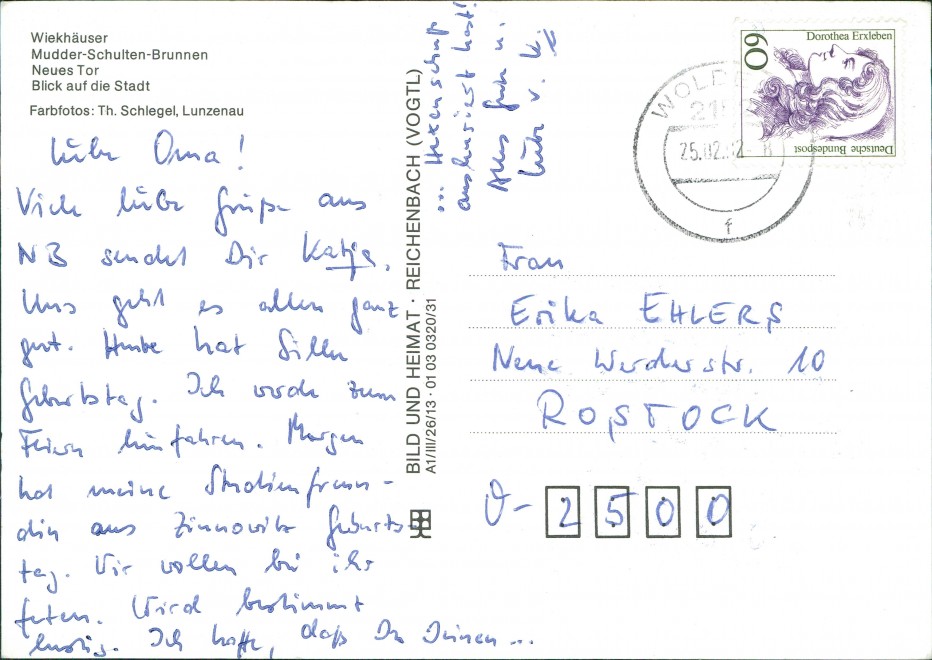 Wiekhäuser
Mudder-Schulten-Brunnen
Neues Tor
Blick auf die Stadt
Farbfotos: Th. Schlegel, Lunzenau
Liebe Oma!
Viele liebe Grüße aus
NB sendet Dir Katja.
Uns geht es allen ganz
gut. Heute hat Silke
Geburtstag. Ich werde zum
Feiern hinfahren. Morgen
hat meine Studienfreun-
din aus Zinnowitz Geburts-
tag. Wir wollen bei ihr
feten. Wird bestimmt
lustig. Ich hoffe, daß Du Deinen ...
... Hexenschuß
auskuriert hast!
Alles Gute u.
Liebe v. K.
BILD UND HEIMAT · REICHENBACH (VOGTL)
A1/III/26/13 · 01 03 0320/31
Dorothea Erxleben
60
Deutsche Bundespost
25.02.92
f
Frau
Erika EHLERS
Neue Werderstr. 10
ROSTOCK
O-2500